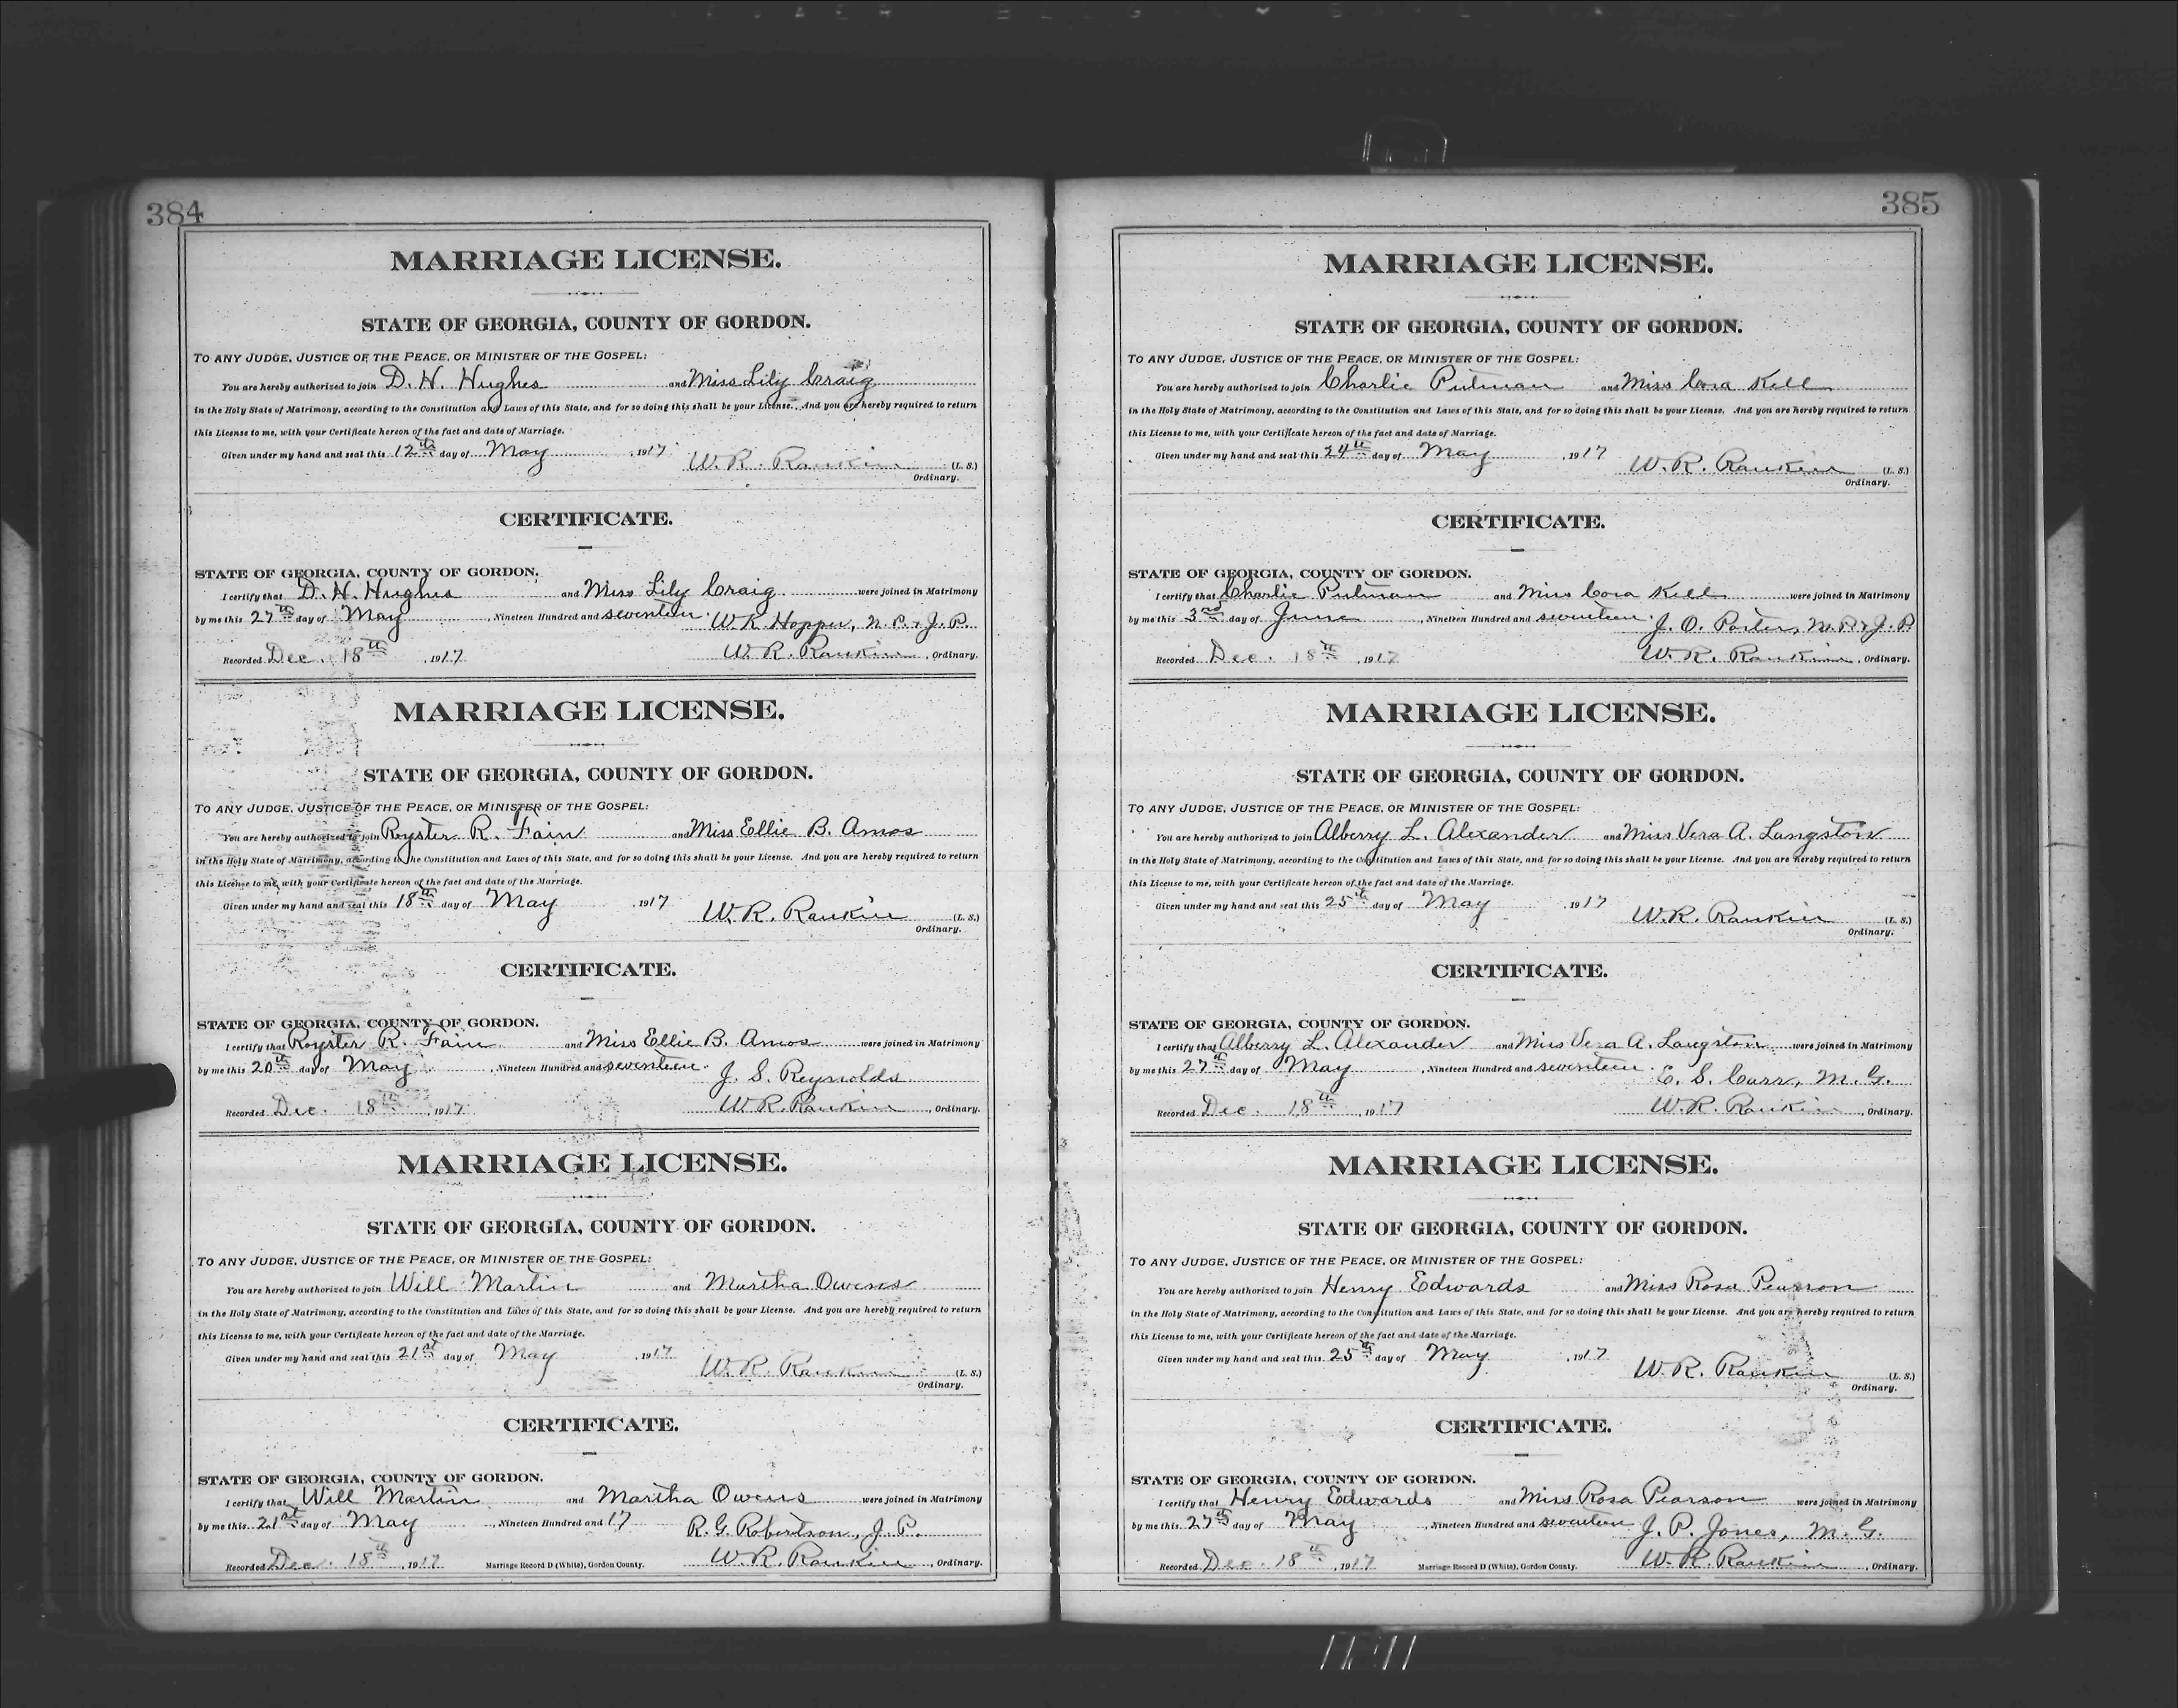 384
MARRIAGE LICENSE.
STATE OF GEORGIA, COUNTY OF GORDON.
TO ANY JUDGE, JUSTICE OF THE PEACE, OR MINISTER OF THE GOSPEL:
You are hereby authorized to join D. H. Hughes and Miss Lily Craig
in the Holy State of Matrimony, according to the Constitution and Laws of this State, and for so doing this shall be your License. And you are hereby required to return
this License to me, with your Certificate hereon of the fact and date of Marriage.
Given under my hand and seal this 12th day of May, 1917 W. R. Rankin (L. S.)
Ordinary.
CERTIFICATE.
STATE OF GEORGIA, COUNTY OF GORDON.
I certify that D. H. Hughes and Miss Lily Craig were joined in Matrimony
by me this 27th day of May, Nineteen Hundred and seventeen. W. R. Hopper, N. P. & J. P.
Recorded Dec. 18th, 1917 W. R. Rankin, Ordinary.
MARRIAGE LICENSE.
STATE OF GEORGIA, COUNTY OF GORDON.
TO ANY JUDGE, JUSTICE OF THE PEACE, OR MINISTER OF THE GOSPEL:
You are hereby authorized to join Royster R. Fain and Miss Ellie B. Amos
in the Holy State of Matrimony, according to the Constitution and Laws of this State, and for so doing this shall be your License. And you are hereby required to return
this License to me, with your Certificate hereon of the fact and date of the Marriage.
Given under my hand and seal this 18th day of May, 1917 W. R. Rankin (L. S.)
Ordinary.
CERTIFICATE.
STATE OF GEORGIA, COUNTY OF GORDON.
I certify that Royster R. Fain and Miss Ellie B. Amos were joined in Matrimony
by me this 20th day of May, Nineteen Hundred and seventeen. J. S. Reynolds
Recorded Dec. 18th, 1917 W. R. Rankin, Ordinary.
MARRIAGE LICENSE.
STATE OF GEORGIA, COUNTY OF GORDON.
TO ANY JUDGE, JUSTICE OF THE PEACE, OR MINISTER OF THE GOSPEL:
You are hereby authorized to join Will Martin and Martha Owens
in the Holy State of Matrimony, according to the Constitution and Laws of this State, and for so doing this shall be your License. And you are hereby required to return
this License to me, with your Certificate hereon of the fact and date of the Marriage.
Given under my hand and seal this 21st day of May, 1917 W. R. Rankin (L. S.)
Ordinary.
CERTIFICATE.
STATE OF GEORGIA, COUNTY OF GORDON.
I certify that Will Martin and Martha Owens were joined in Matrimony
by me this 21st day of May, Nineteen Hundred and 17 R. G. Robertson, J. P.
Recorded Dec. 18th, 1917 Marriage Record D (White), Gordon County. W. R. Rankin, Ordinary.
385
MARRIAGE LICENSE.
STATE OF GEORGIA, COUNTY OF GORDON.
TO ANY JUDGE, JUSTICE OF THE PEACE, OR MINISTER OF THE GOSPEL:
You are hereby authorized to join Charlie Putman and Miss Cora Kell
in the Holy State of Matrimony, according to the Constitution and Laws of this State, and for so doing this shall be your License. And you are hereby required to return
this License to me, with your Certificate hereon of the fact and date of Marriage.
Given under my hand and seal this 24th day of May, 1917 W. R. Rankin (L. S.)
Ordinary.
CERTIFICATE.
STATE OF GEORGIA, COUNTY OF GORDON.
I certify that Charlie Putman and Miss Cora Kell were joined in Matrimony
by me this 3rd day of June, Nineteen Hundred and seventeen. J. O. Porter, N. P. & J. P.
Recorded Dec. 18th, 1917 W. R. Rankin, Ordinary.
MARRIAGE LICENSE.
STATE OF GEORGIA, COUNTY OF GORDON.
TO ANY JUDGE, JUSTICE OF THE PEACE, OR MINISTER OF THE GOSPEL:
You are hereby authorized to join Alberry L. Alexander and Miss Vera A. Langston
in the Holy State of Matrimony, according to the Constitution and Laws of this State, and for so doing this shall be your License. And you are hereby required to return
this License to me, with your Certificate hereon of the fact and date of the Marriage.
Given under my hand and seal this 25th day of May, 1917 W. R. Rankin (L. S.)
Ordinary.
CERTIFICATE.
STATE OF GEORGIA, COUNTY OF GORDON.
I certify that Alberry L. Alexander and Miss Vera A. Langston were joined in Matrimony
by me this 27th day of May, Nineteen Hundred and seventeen. E. S. Carr, M. G.
Recorded Dec. 18th, 1917 W. R. Rankin, Ordinary.
MARRIAGE LICENSE.
STATE OF GEORGIA, COUNTY OF GORDON.
TO ANY JUDGE, JUSTICE OF THE PEACE, OR MINISTER OF THE GOSPEL:
You are hereby authorized to join Henry Edwards and Miss Rosa Pearson
in the Holy State of Matrimony, according to the Constitution and Laws of this State, and for so doing this shall be your License. And you are hereby required to return
this License to me, with your Certificate hereon of the fact and date of the Marriage.
Given under my hand and seal this 25th day of May, 1917 W. R. Rankin (L. S.)
Ordinary.
CERTIFICATE.
STATE OF GEORGIA, COUNTY OF GORDON.
I certify that Henry Edwards and Miss Rosa Pearson were joined in Matrimony
by me this 27th day of May, Nineteen Hundred and seventeen J. P. Jones, M. G.
Recorded Dec. 18th, 1917 Marriage Record D (White), Gordon County. W. R. Rankin, Ordinary.